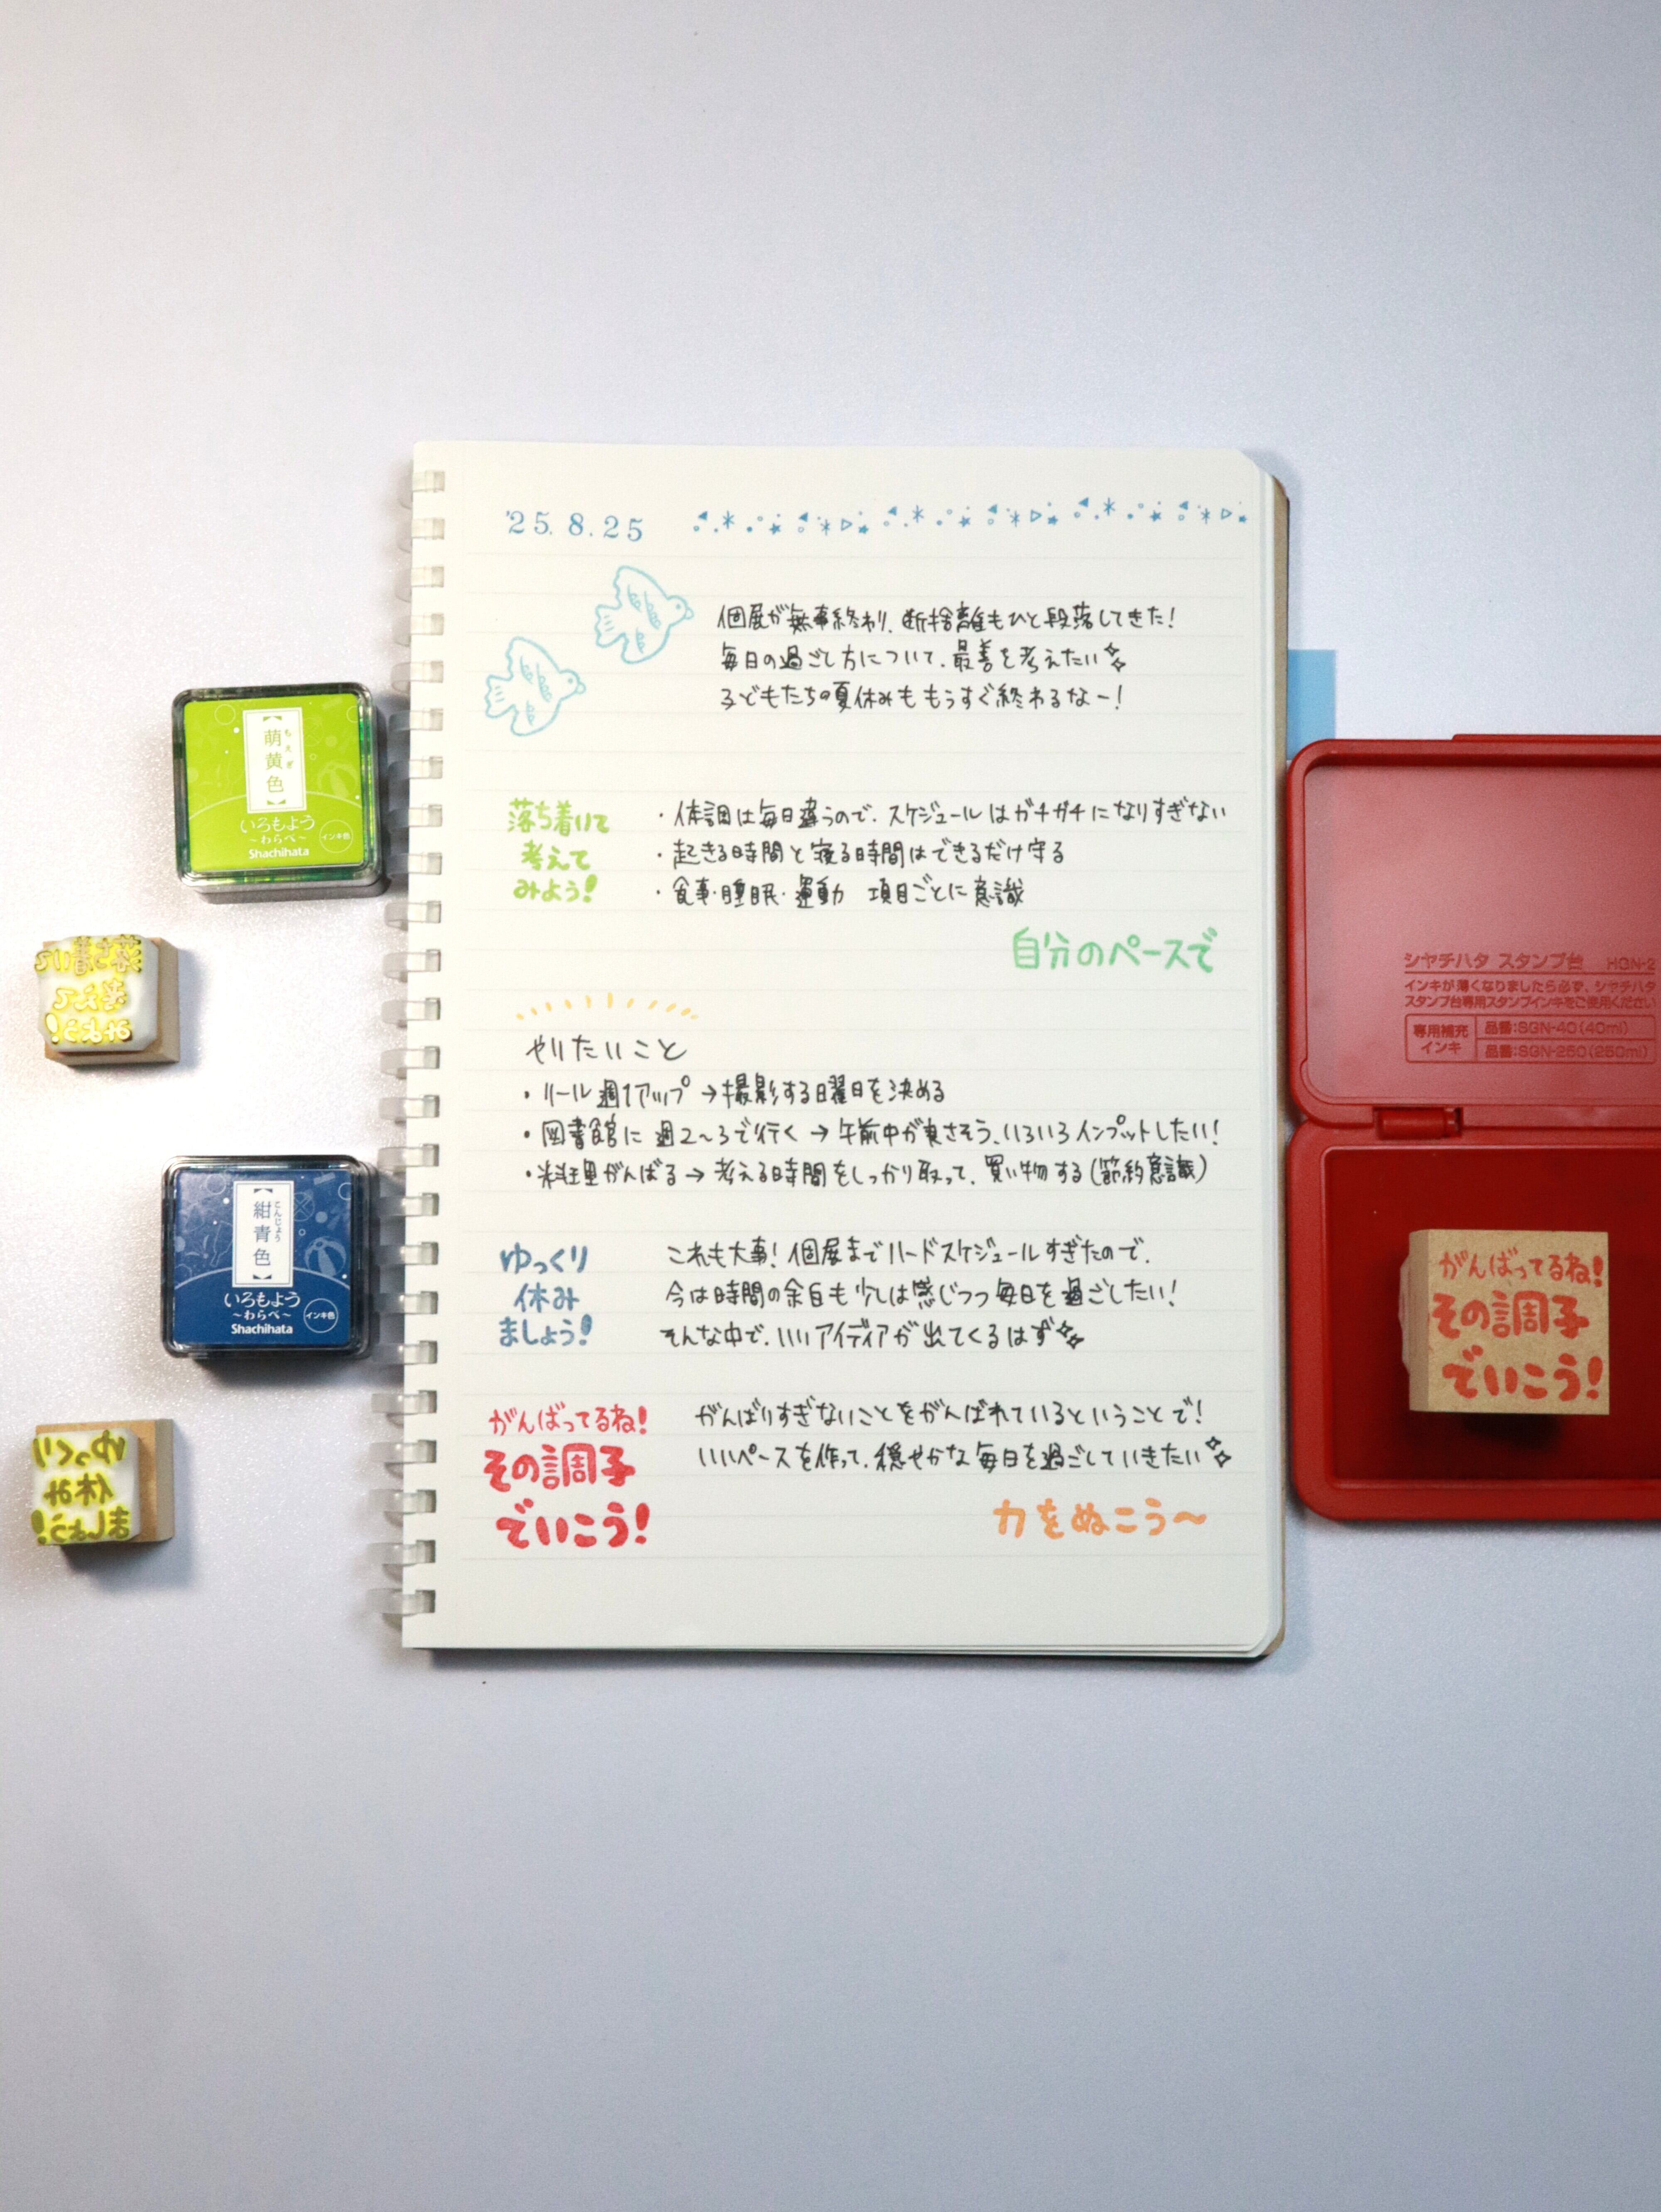 '25.8.25
個展が無事終わり、断捨離もひと段落してきた!
毎日の過ごし方について、最善を考えたい
子どもたちの夏休みももうすぐ終わるなー!
落ち着いて
考えて
みよう!
・体調は毎日違うので、スケジュールはガチガチになりすぎない
・起きる時間と寝る時間はできるだけ守る
・食事・睡眠・運動 項目ごとに意識
自分のペースで
やりたいこと
・リール週1アップ→撮影する曜日を決める
・図書館に週2〜3で行く→午前中が良さそう、いろいろインプットしたい!
・料理がんばる→考える時間をしっかり取って、買い物する(節約意識)
ゆっくり
休み
ましょう!
これも大事!個展までハードスケジュールすぎたので、
今は時間の余白も少しは感じつつ毎日を過ごしたい!
そんな中で、いいアイディアが出てくるはず
がんばってるね!
その調子
でいこう!
がんばりすぎないことをがんばれているということで!
いいペースを作って、穏やかな毎日を過ごしていきたい
力をぬこう〜
【萌黄色】
もえぎ
いろもよう
〜わらべ〜
Shachihata
インキ色
落ち着いて
考えて
みよう!
【紺青色】
こんじょう
いろもよう
〜わらべ〜
Shachihata
インキ色
ゆっくり
休み
ましょう!
シヤチハタ スタンプ台 HGN-2
インキが薄くなりましたら必ず、シヤチハタ
スタンプ台専用スタンプインキをご使用ください
専用補充
インキ
品番:SGN-40(40ml)
品番:SGN-250(250ml)
がんばってるね!
その調子
でいこう!